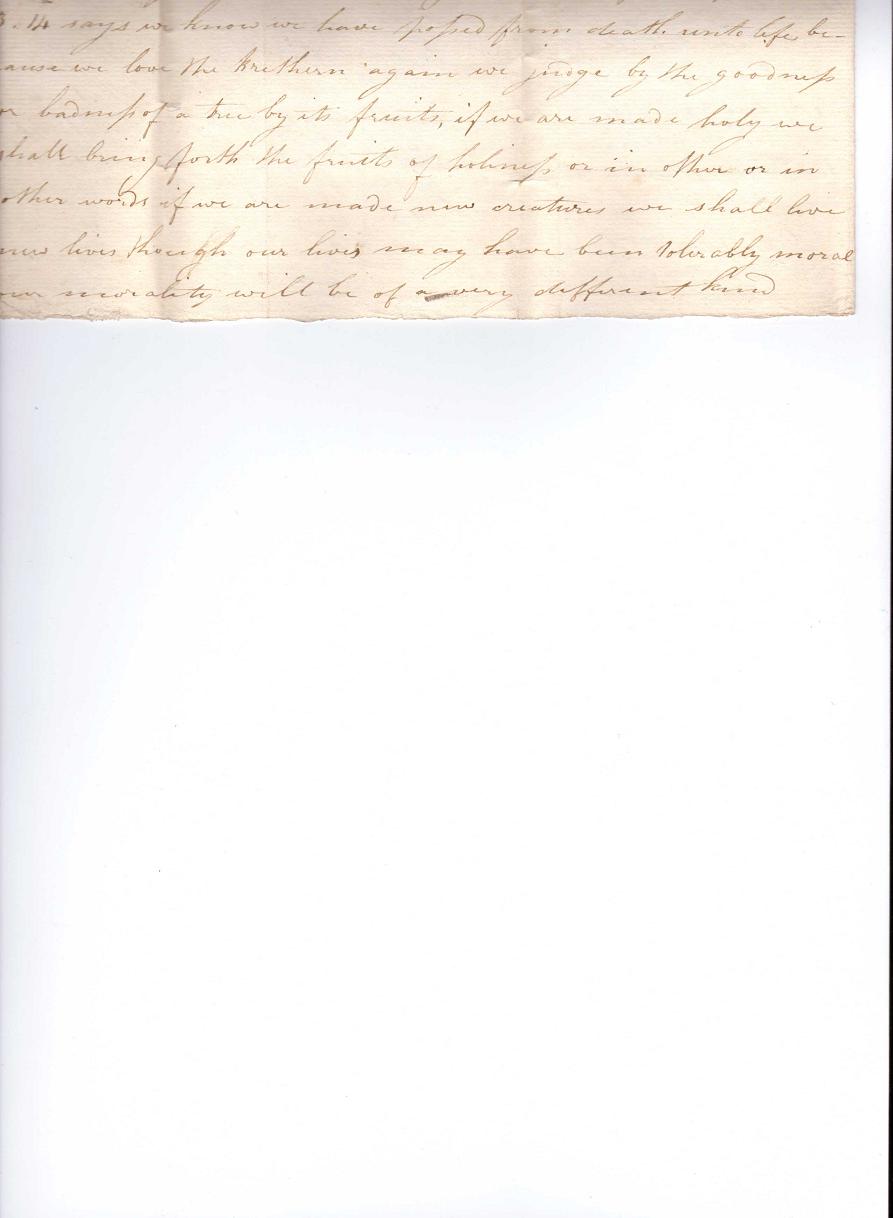 3.14 says we know we have passed from death unto life be-
ause we love the brethern again we judge by the goodness
or badness of a tree by its fruits, if we are made holy we
shall bring forth the fruits of holiness or in other or in
other words if we are made new creatures we shall live
new lives though our lives may have been tolerably moral
our morality will be of a very different kind